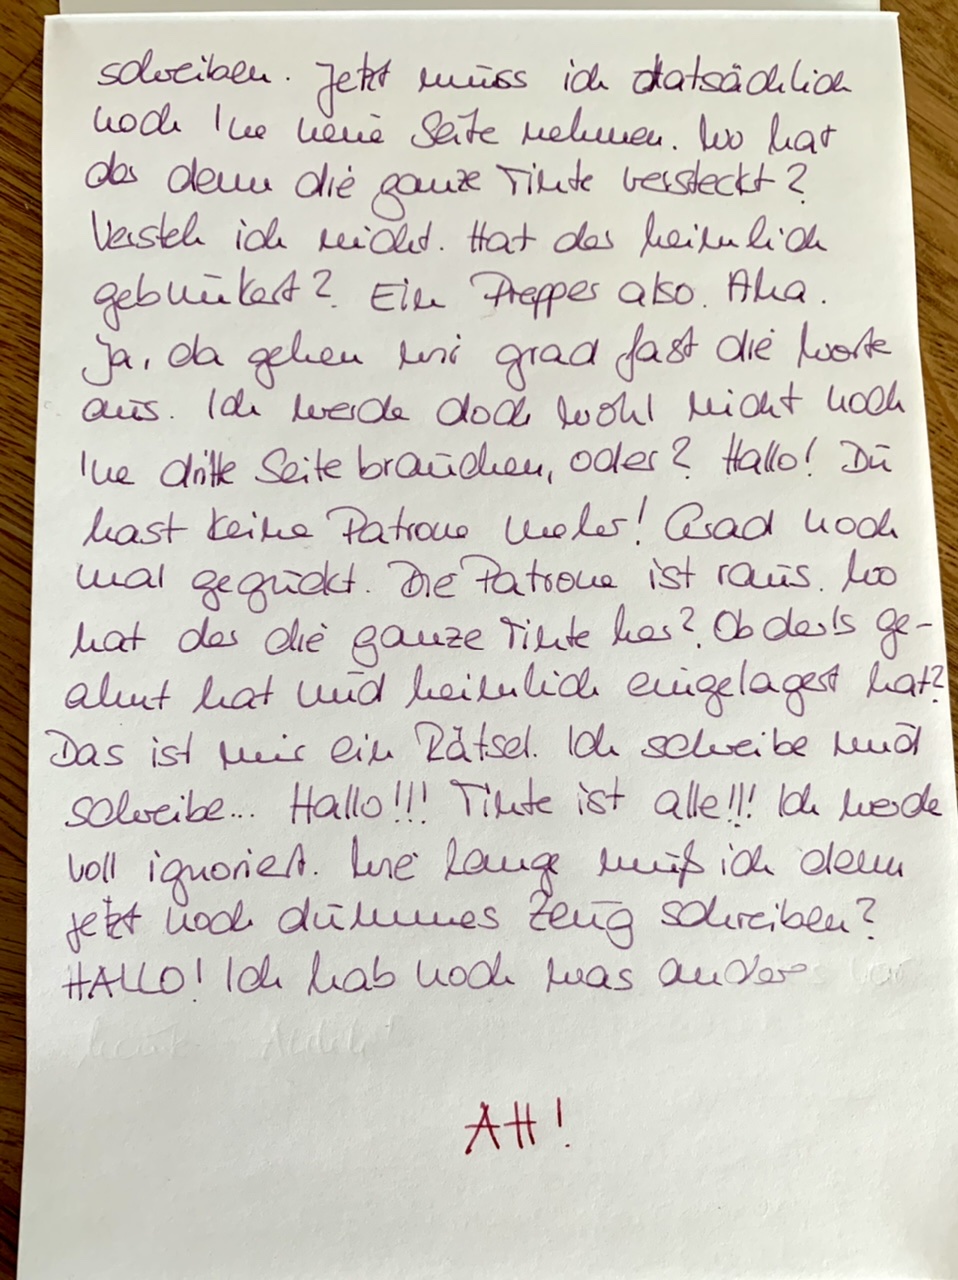 schreiben. Jetzt muss ich tatsächlich
noch 'ne neue Seite nehmen. Wo hat
der denn die ganze Tinte versteckt?
Versteh ich nicht. Hat der heimlich
gebunkert? Ein Prepper also. Aha.
Ja, da gehen mir grad fast die Worte
aus. Ich werde doch wohl nicht noch
'ne dritte Seite brauchen, oder? Hallo! Du
hast keine Patrone mehr! Grad noch
mal geguckt. Die Patrone ist raus. Wo
hat der die ganze Tinte her? Ob der's ge-
ahnt hat und heimlich eingelagert hat?
Das ist mir ein Rätsel. Ich schreibe und
schreibe... Hallo!!! Tinte ist alle!!! Ich werde
voll ignoriert. Wie lange muß ich denn
jetzt noch dummes Zeug schreiben?
HALLO! Ich hab noch was anderes vor
AH!